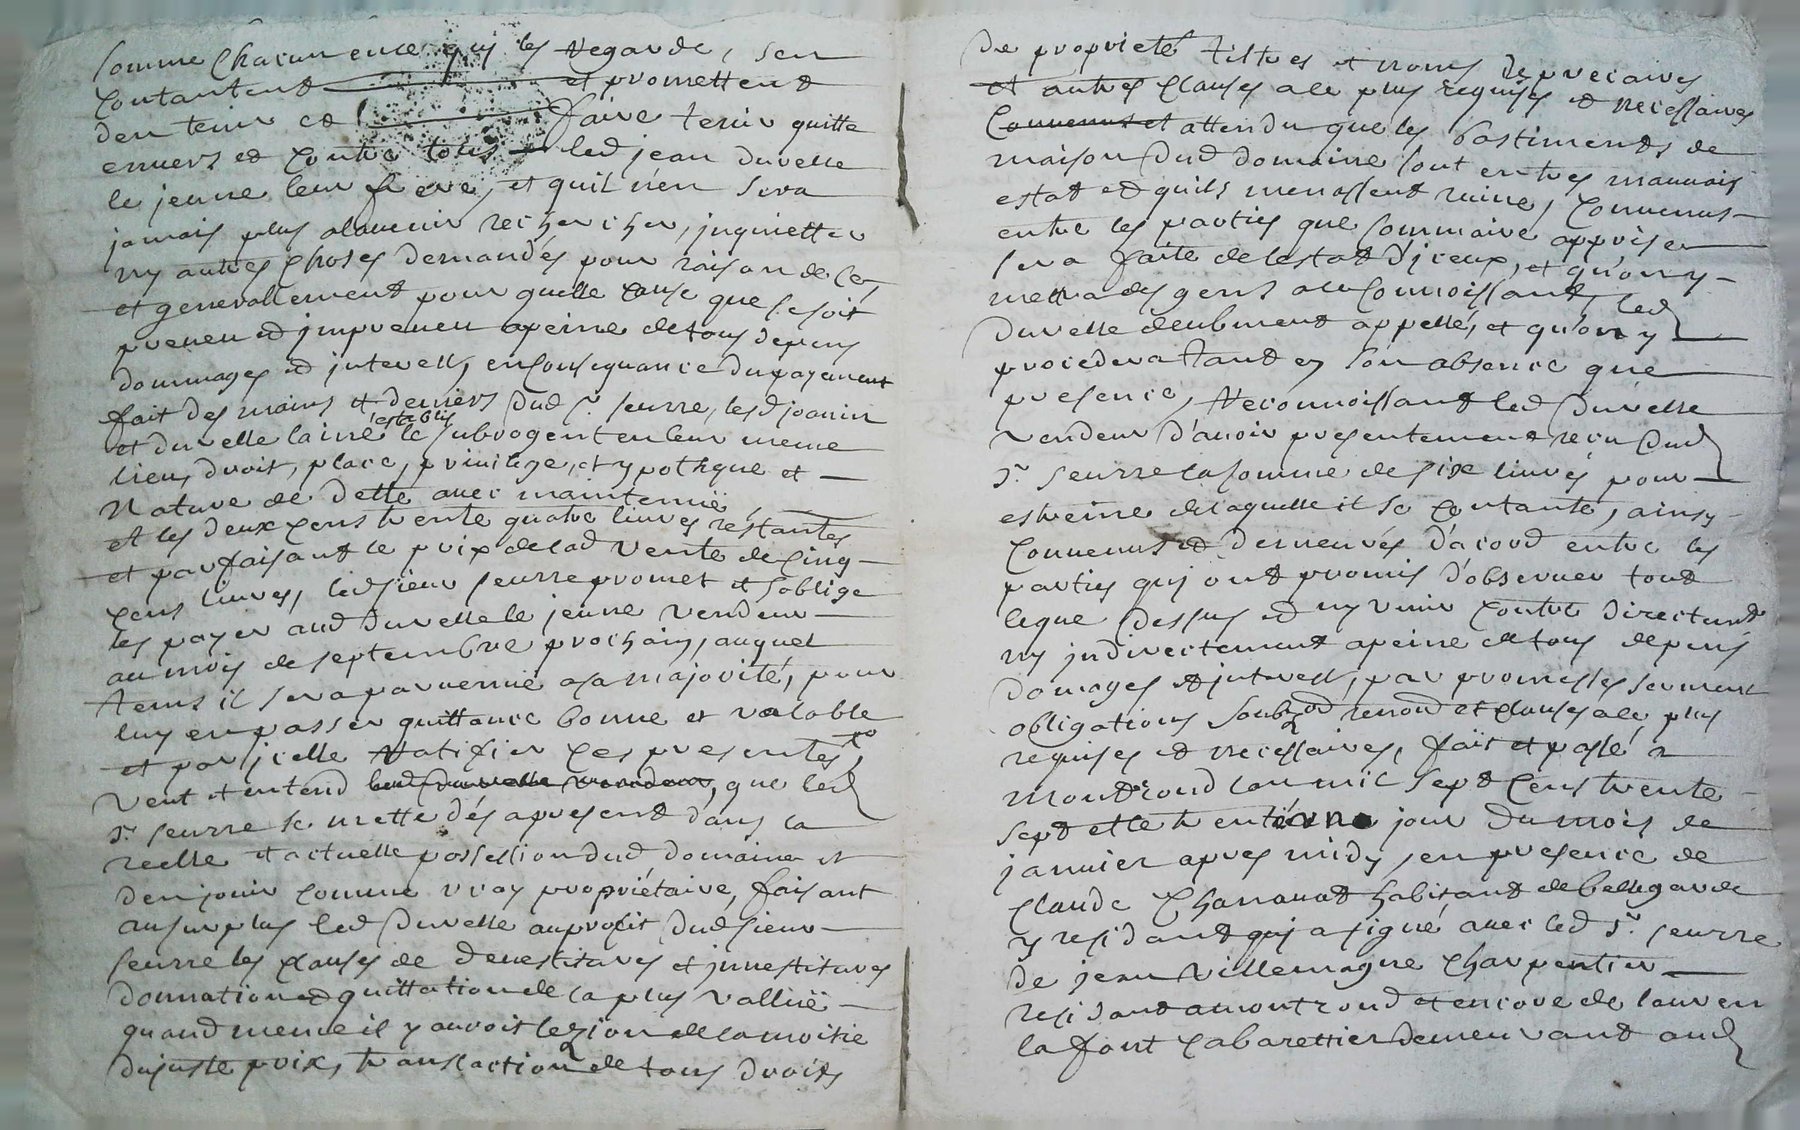 somme chacun en ce quj les regarde, sen
contantent et promettent
den tenir et faire tenir quitte
enuers et contre tous led jean duvelle
le jeune leur frere, et quil n'en sera
jamais plus alauenir rechercher, jnquietter
ny autres choses demandés pour raison de ce,
et generallement pour quelle cause que ce soit
preueu et jmpreueu apeine de tous depens
dommages et interest, en consequance du payement
fait des mains et deniers dud sr. seurre, lesd joanin
et duvelle laine le subrogent en leur meme
lieu, droit, place, priuilege, et ypotheque et
Nature de dette auec maintenuë,
et les deux cens trente quatre liures restantes
et parfaisant le prix de lad vente de cinq
cens liures, led sieur seurre promet et s'oblige
les payer aud duvelle le jeune vendeur
au mois de septembre prochain, auquel
tems il sera paruenuë asa majorité, pour
luy en passer quittance bonne et valable
et par jcelle Ratifier ces presentes,
veut et entend led duvelle vendeur, que led
sr. seurre se mette dés apresent dans la
reelle et actuelle possession dud domaine et
den jouir comme vray propriétaire, faisant
au surplus led duvelle au profit dud sieur
seurre les clauses de deuestitures et jnuestitures
donnation et quittation de la plus valluë
quand meme il y auroit lezion de la moitie
dujuste prix, translaction de tous droits
de proprieté tiltres et noms de precaires
et autres clauses ace plus requises et necessaires
Conuenus et attendu que les bastiments de
maison dud domaine sont en tres mauuais
estat et quils menassent ruine, conuenus
entre les parties que sommaire apprise
sera faite de lestat d'jceux, et qu'on y
mettra des gens ace connoissant, led
duvelle deubment appellé, et qu'on y
procedera tant en son absence que
presence, Reconnoissant led duvelle
vendeur d'auoir presentement recu dud
sr. seurre la somme de six liures pour
estreine de laquelle il se contante, ainsy
conuenus et demeurés d'acord entre les
parties quj ont promis d'obseruer tout
ceque dessus et ny venir contre directemt
ny jndirectement apeine de tous depens
domages et jnterest, par promesses serment
obligations soubmond renond et clauses ace plus
requises et necessaires, fait et passé a
montrond lan mil sept cens trente
sept et le trentiéme jour du mois de
januier apres midy, en presence de
claude Charranat habitant de bellegarde
y residant quj a signé auec led sr. seurre
de jean villemagne charpentier
residant amontrond et encore de lauren
lafont cabarettier demeurant aud